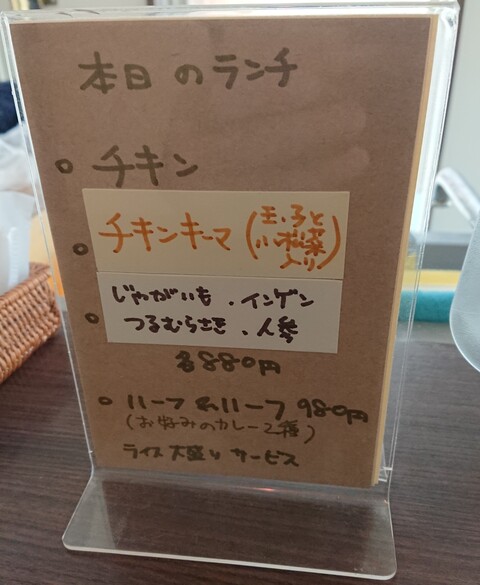 本日のランチ
チキン
チキンキーマ(玉子と
小松菜
入り)
じゃがいも・インゲン
つるむらさき・人参
各880円
ハーフ&ハーフ 980円
(お好みのカレー2種)
ライス大盛りサービス